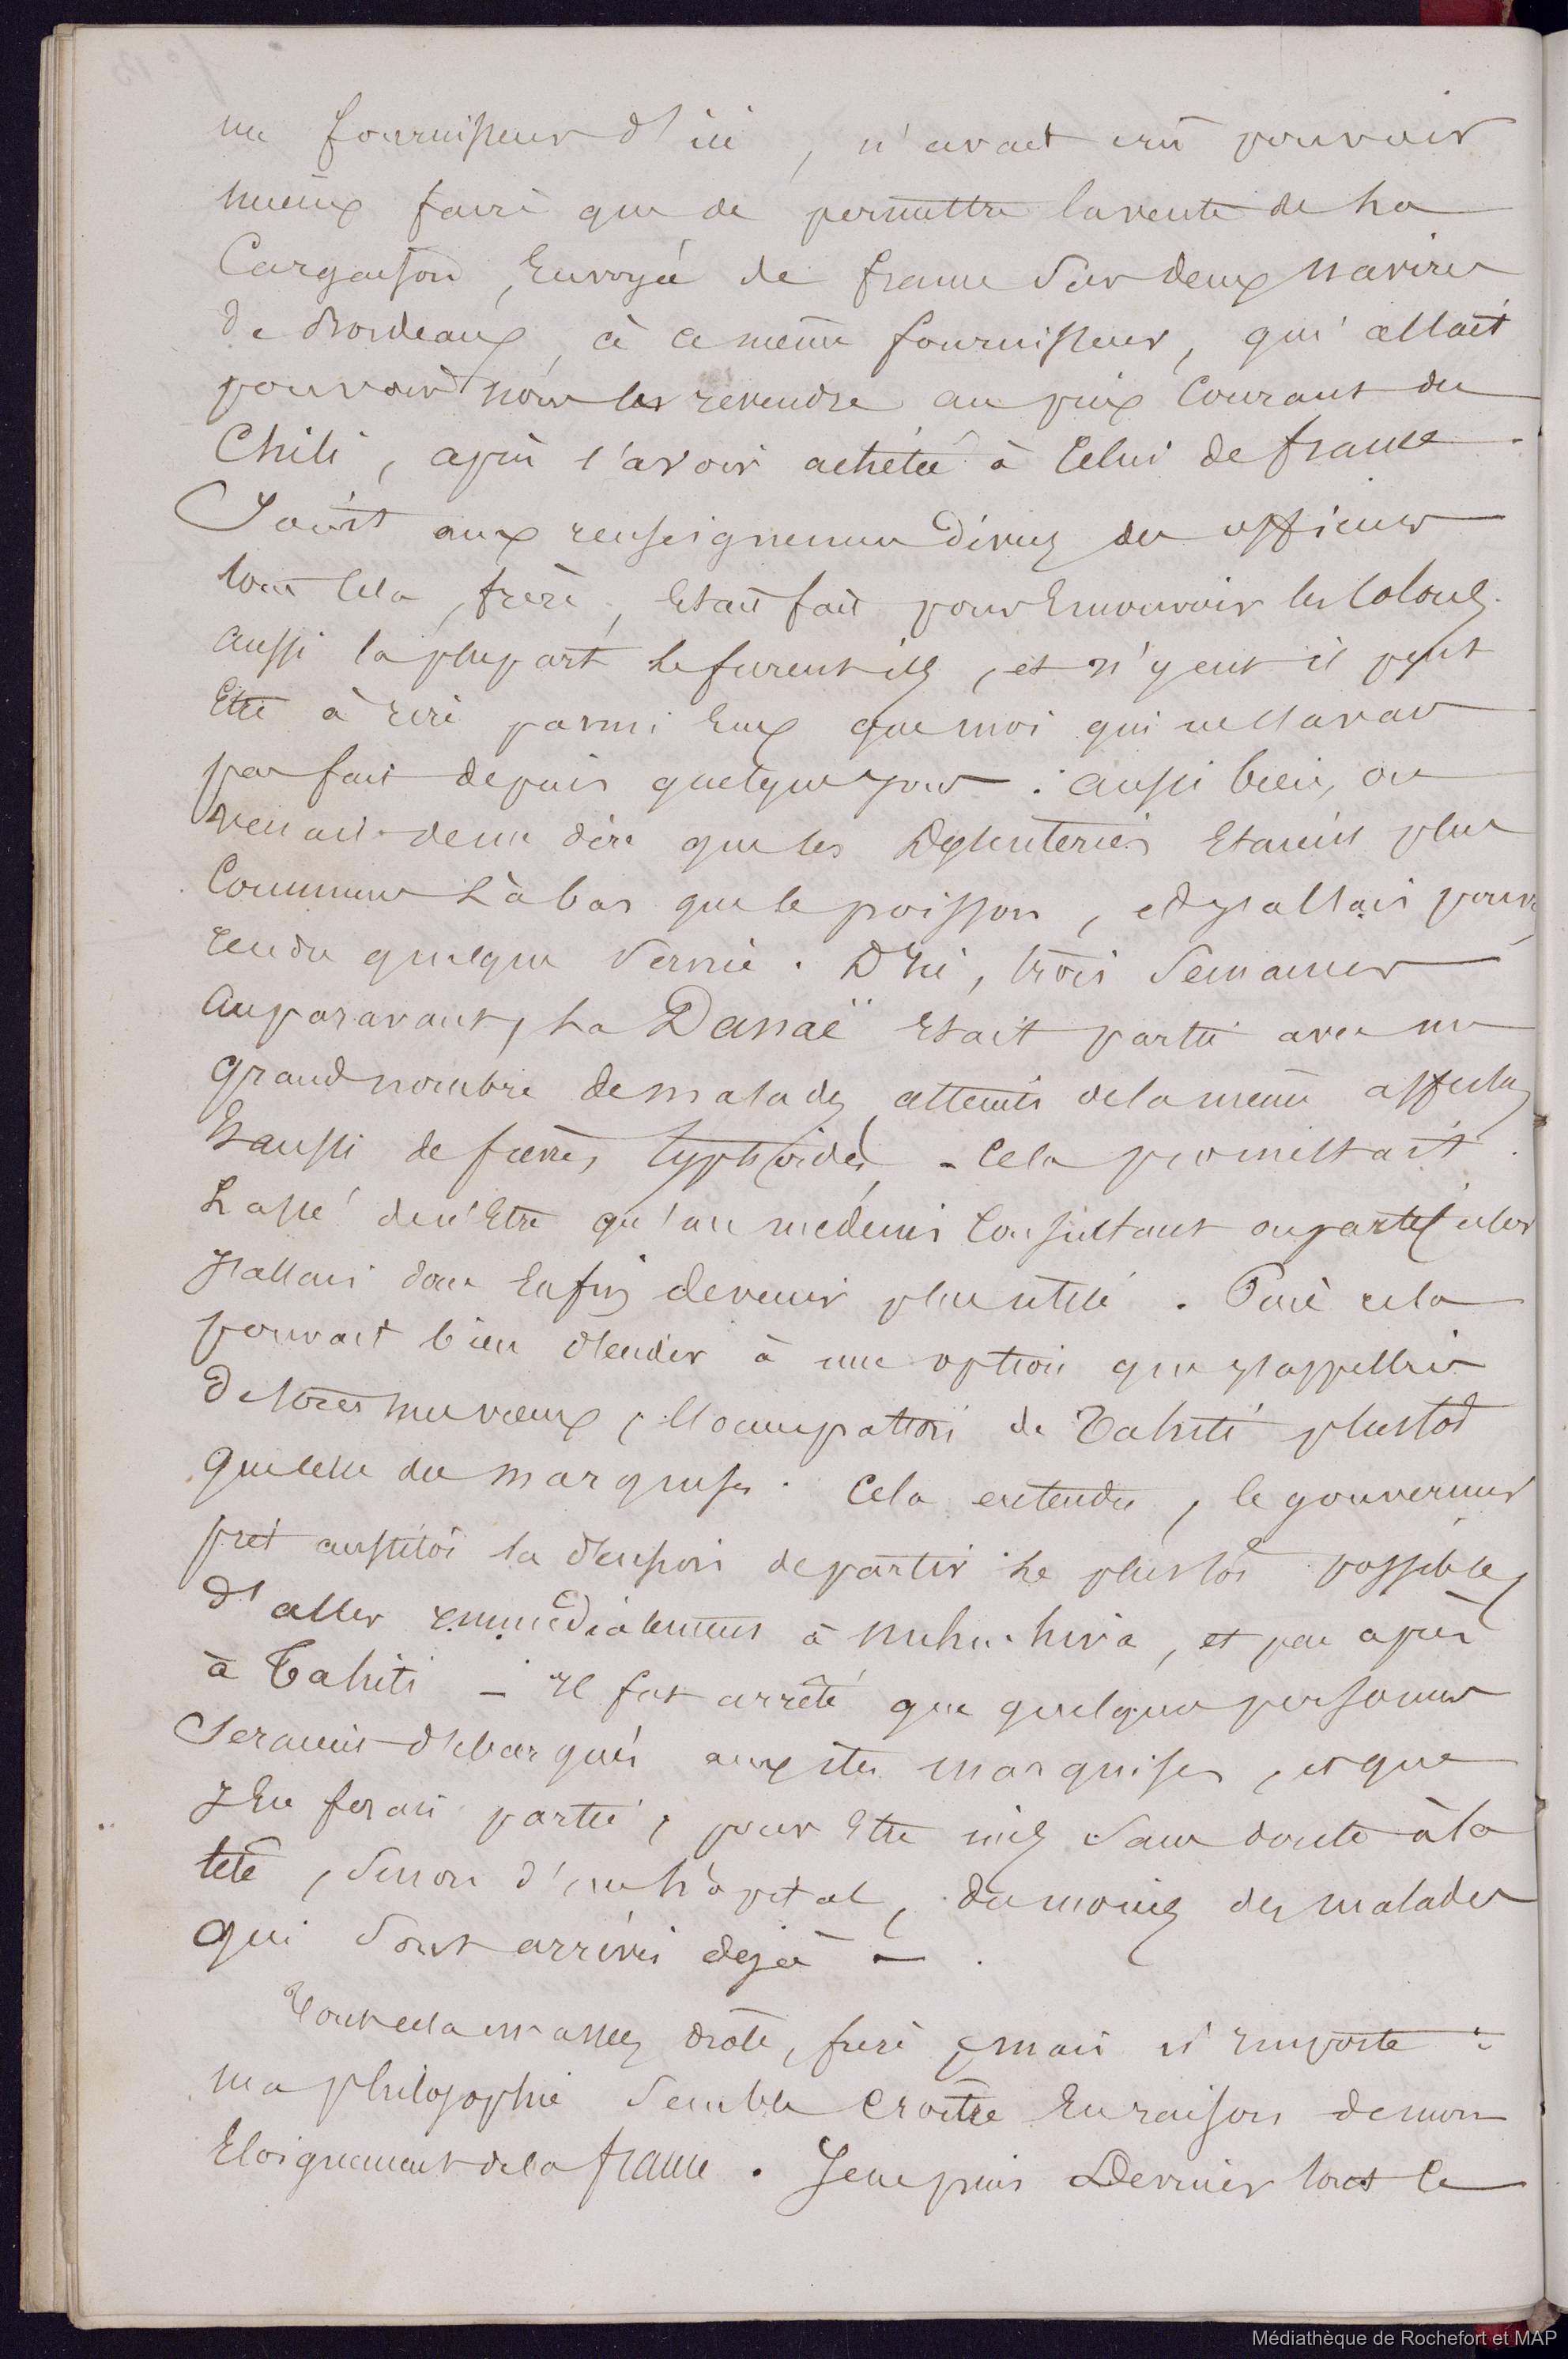 un fournisseur d'ici, n'avait crû pouvoir
mieux faire que de permettre la vente de la
Cargaison, Envoyée de france Sur deux navires
de Bordeaux, à ce même fournisseur, qui allait
pouvoir nous les revendre au prix Courant du
Chili, après l'avoir achetée à Celui de france.
Joint aux renseignemens divers des officiers
tout Cela, frère, Etait fait pour Emouvoir les Colons.
aussi la plupart le furent ils, et n'y eut il peut
Etre à rire parmi Eux que moi qui ne l'avais
pas fait depuis quelques jours : aussi bien, on
venait de me dire que les Dyssenteries Etaient plus
Communes Là bas que le poisson, et j'allais pouvoir
rendre quelque Service. D'ici, trois Semaines
Auparavant, La Danaë Etait partie avec un
grand nombre de malades atteints de la même affection
Et aussi de fièvres typhoïdes - Cela promettait.
Lassé de n'Etre qu'un médecin Consultant ou particulier
J'allais donc Enfin devenir plus utile. Puis cela
pouvait bien tendre à une option que j'appellais
de tous mes vœux, l'occupation de Tahiti plustôt
que celle des marquises. Cela entendu, le gouverneur
prit aussitôt la décision de partir le plustôt possible,
d'aller immédiatement à nuhu-hiva, et peu après
à Tahiti - Il fut arrêté que quelques personnes
Seraient débarqués aux iles marquises, et que
J'En ferais partie, pour Etre mis Sans doute à la
tête, Sinon d'un hôpital, du moins des malades
qui Sont arrivés déjà - .
Tout cela est assez drôle, frère, mais n'importe :
ma philosophie Semble Croître En raison de mon
Eloignement de la france. Je ne puis Deviner tout ce